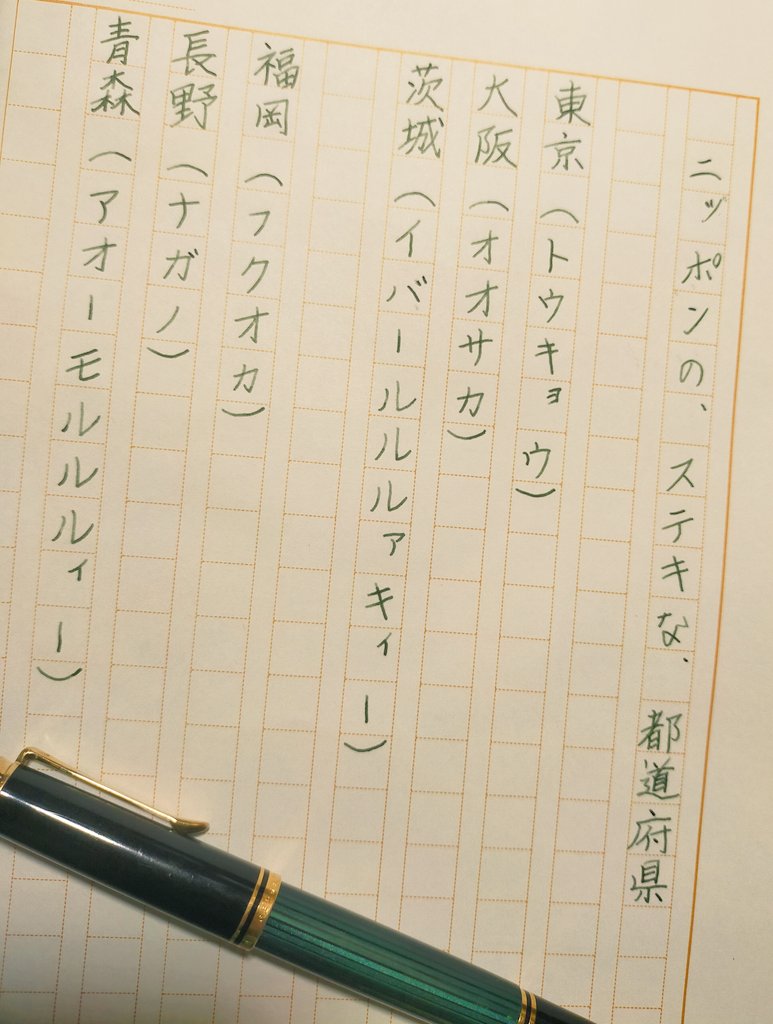 ニッポンの、ステキな、都道府県
東京（トウキョウ）
大阪（オオサカ）
茨城（イバールルルァキィー）
福岡（フクオカ）
長野（ナガノ）
青森（アオーモルルルィー）